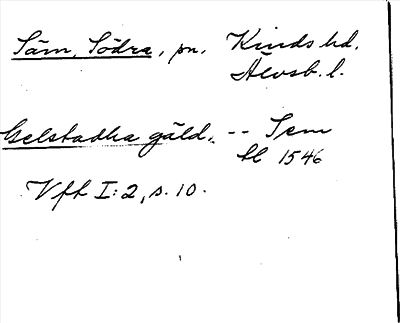 Säm, Södra, sn. Kinds hd.
Älvsb. l.
Gelstadha gäld. -- Sem
tl 1546
Vfh I:2, s. 10.